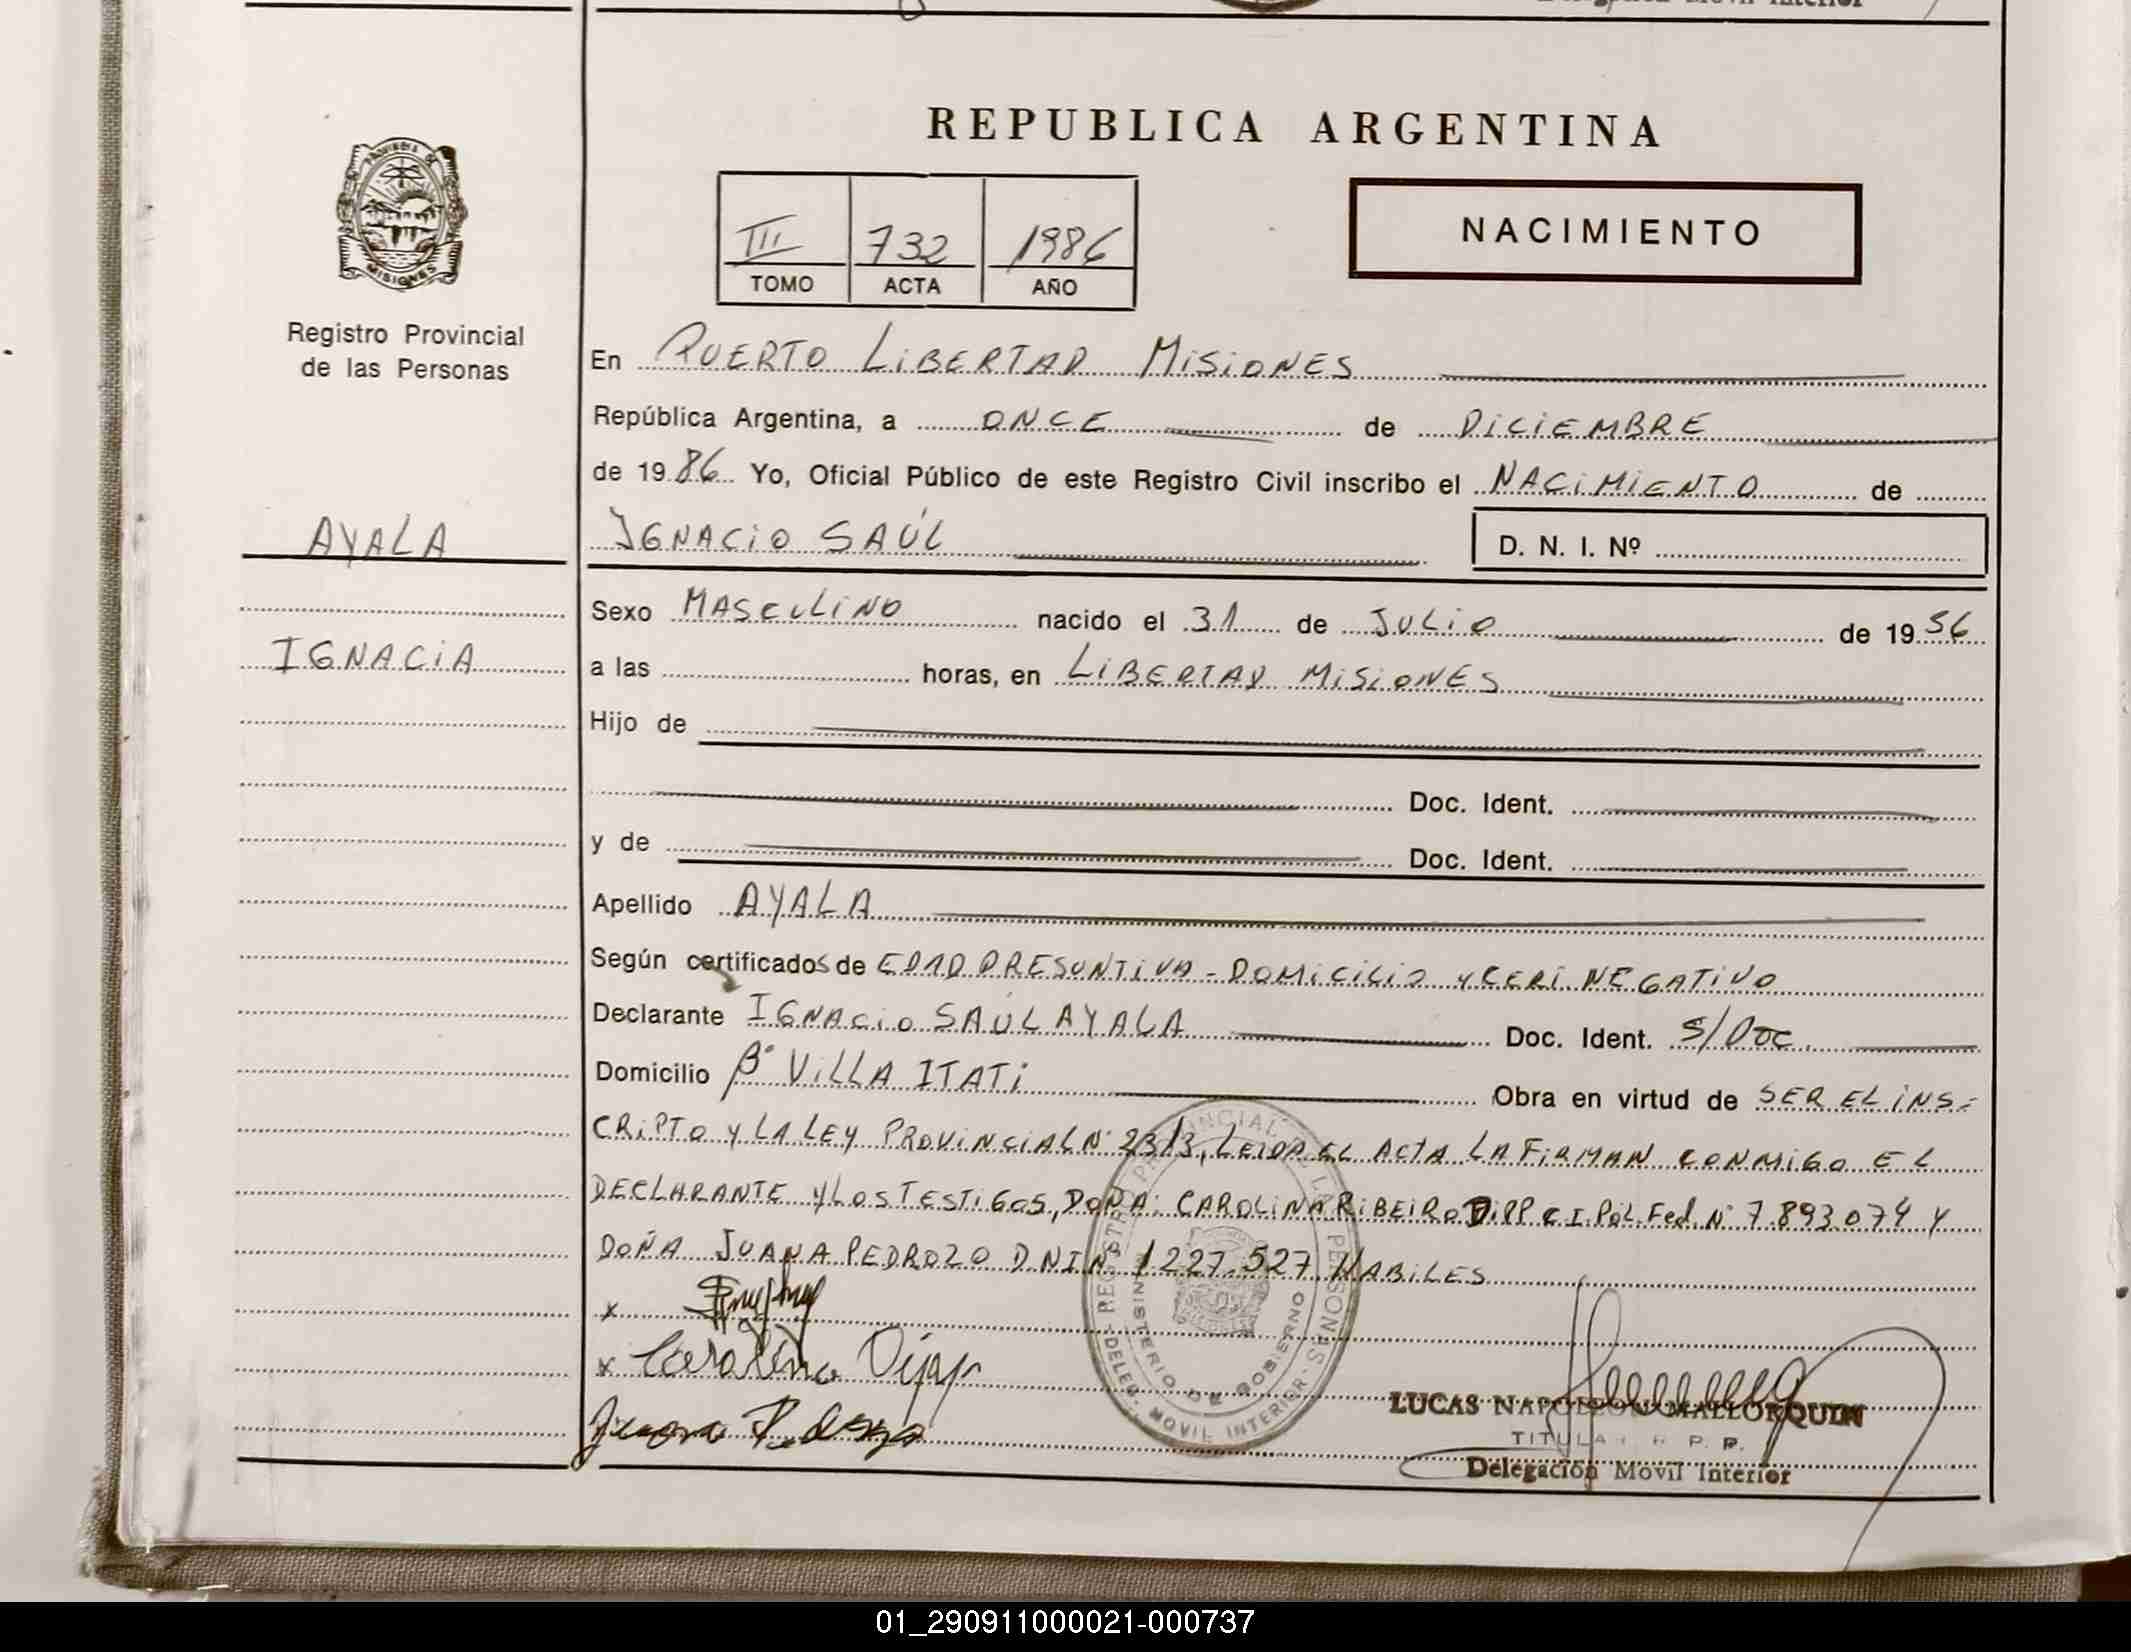 Delegación Movil Interior
REPUBLICA ARGENTINA
PROVINCIA DE MISIONES
III 732 1986
TOMO ACTA AÑO
NACIMIENTO
Registro Provincial
de las Personas
En PUERTO LIBERTAD MISIONES
República Argentina, a ONCE de DICIEMBRE
de 1986 Yo, Oficial Público de este Registro Civil inscribo el NACIMIENTO de
AYALA
IGNACIO SAÚL
D. N. I. Nº
Sexo MASCULINO nacido el 31 de JULIO de 1956
IGNACIA
a las horas, en LIBERTAD MISIONES
Hijo de
Doc. Ident.
y de Doc. Ident.
Apellido AYALA
Según certificados de EDAD PRESUNTIVA - DOMICILIO Y CERT. NEGATIVO
Declarante IGNACIO SAÚL AYALA Doc. Ident. S/DOC.
Domicilio Bº VILLA ITATI Obra en virtud de SER EL INS-
CRIPTO Y LA LEY PROVINCIAL Nº 2313, LEIDA EL ACTA LA FIRMAN CONMIGO EL
DECLARANTE Y LOS TESTIGOS, DOÑA: CAROLINA RIBEIRO DIPP C.I. POL. Fed. Nº 7.893.074 Y
DOÑA JUANA PEDROZO DNI Nº 1227.527 HABILES
x
x Carolina
Juana Pedrozo
REGISTRO PROVINCIAL DE LAS PERSONAS
DELEG. MOVIL INTERIOR
MINISTERIO DE GOBIERNO
LUCAS NAPOLEON MALLORQUIN
TITULAR R. P. P.
Delegación Movil Interior
01_290911000021-000737